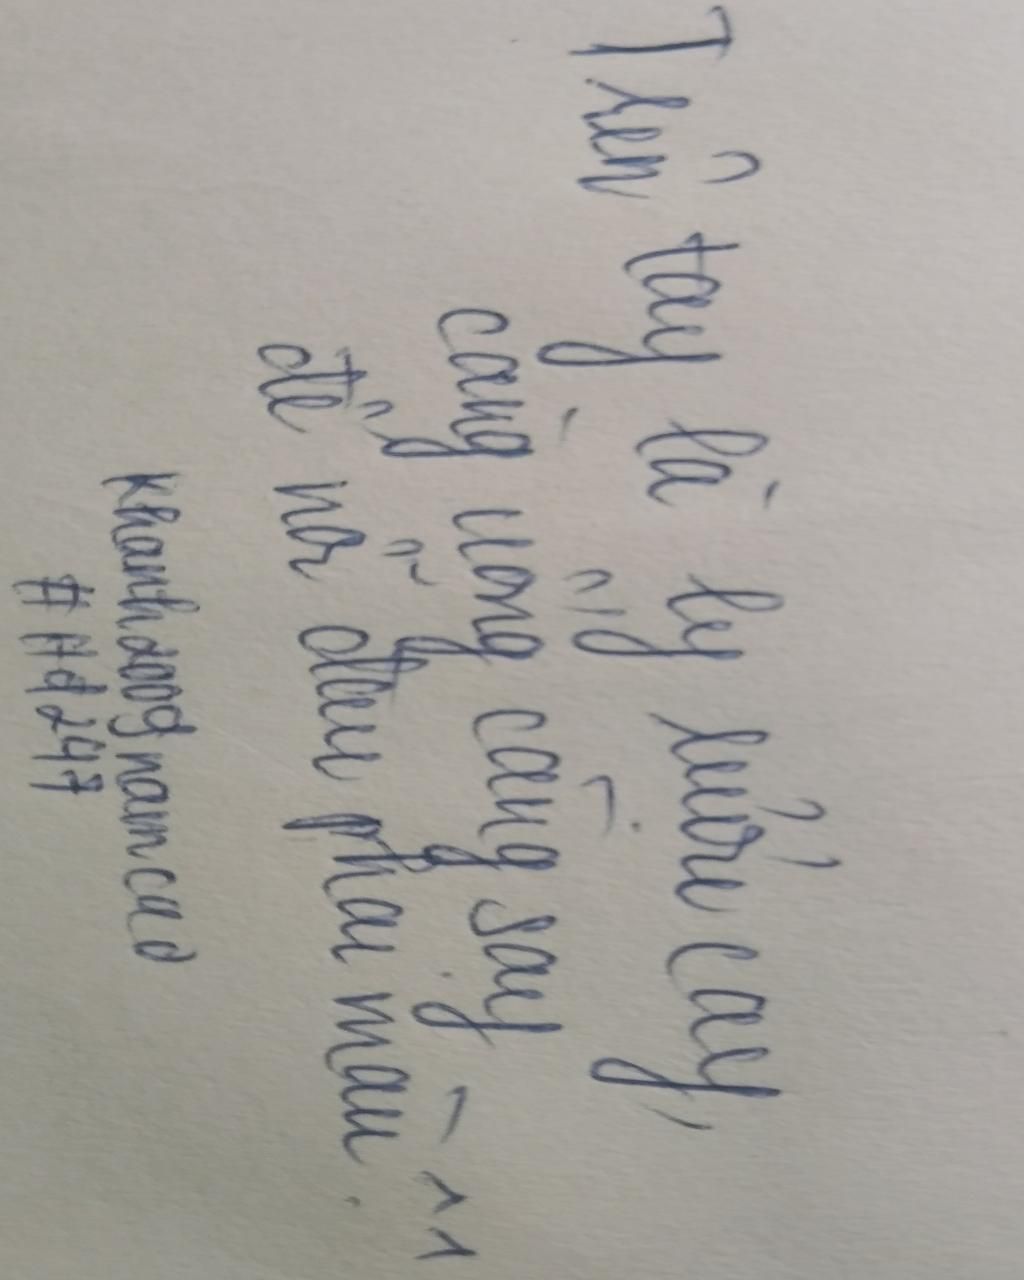 Trên tay là ly rượu cay,
càng uống càng say
để nỗi đau phai màu.
khanh2009namcao
#Hd247